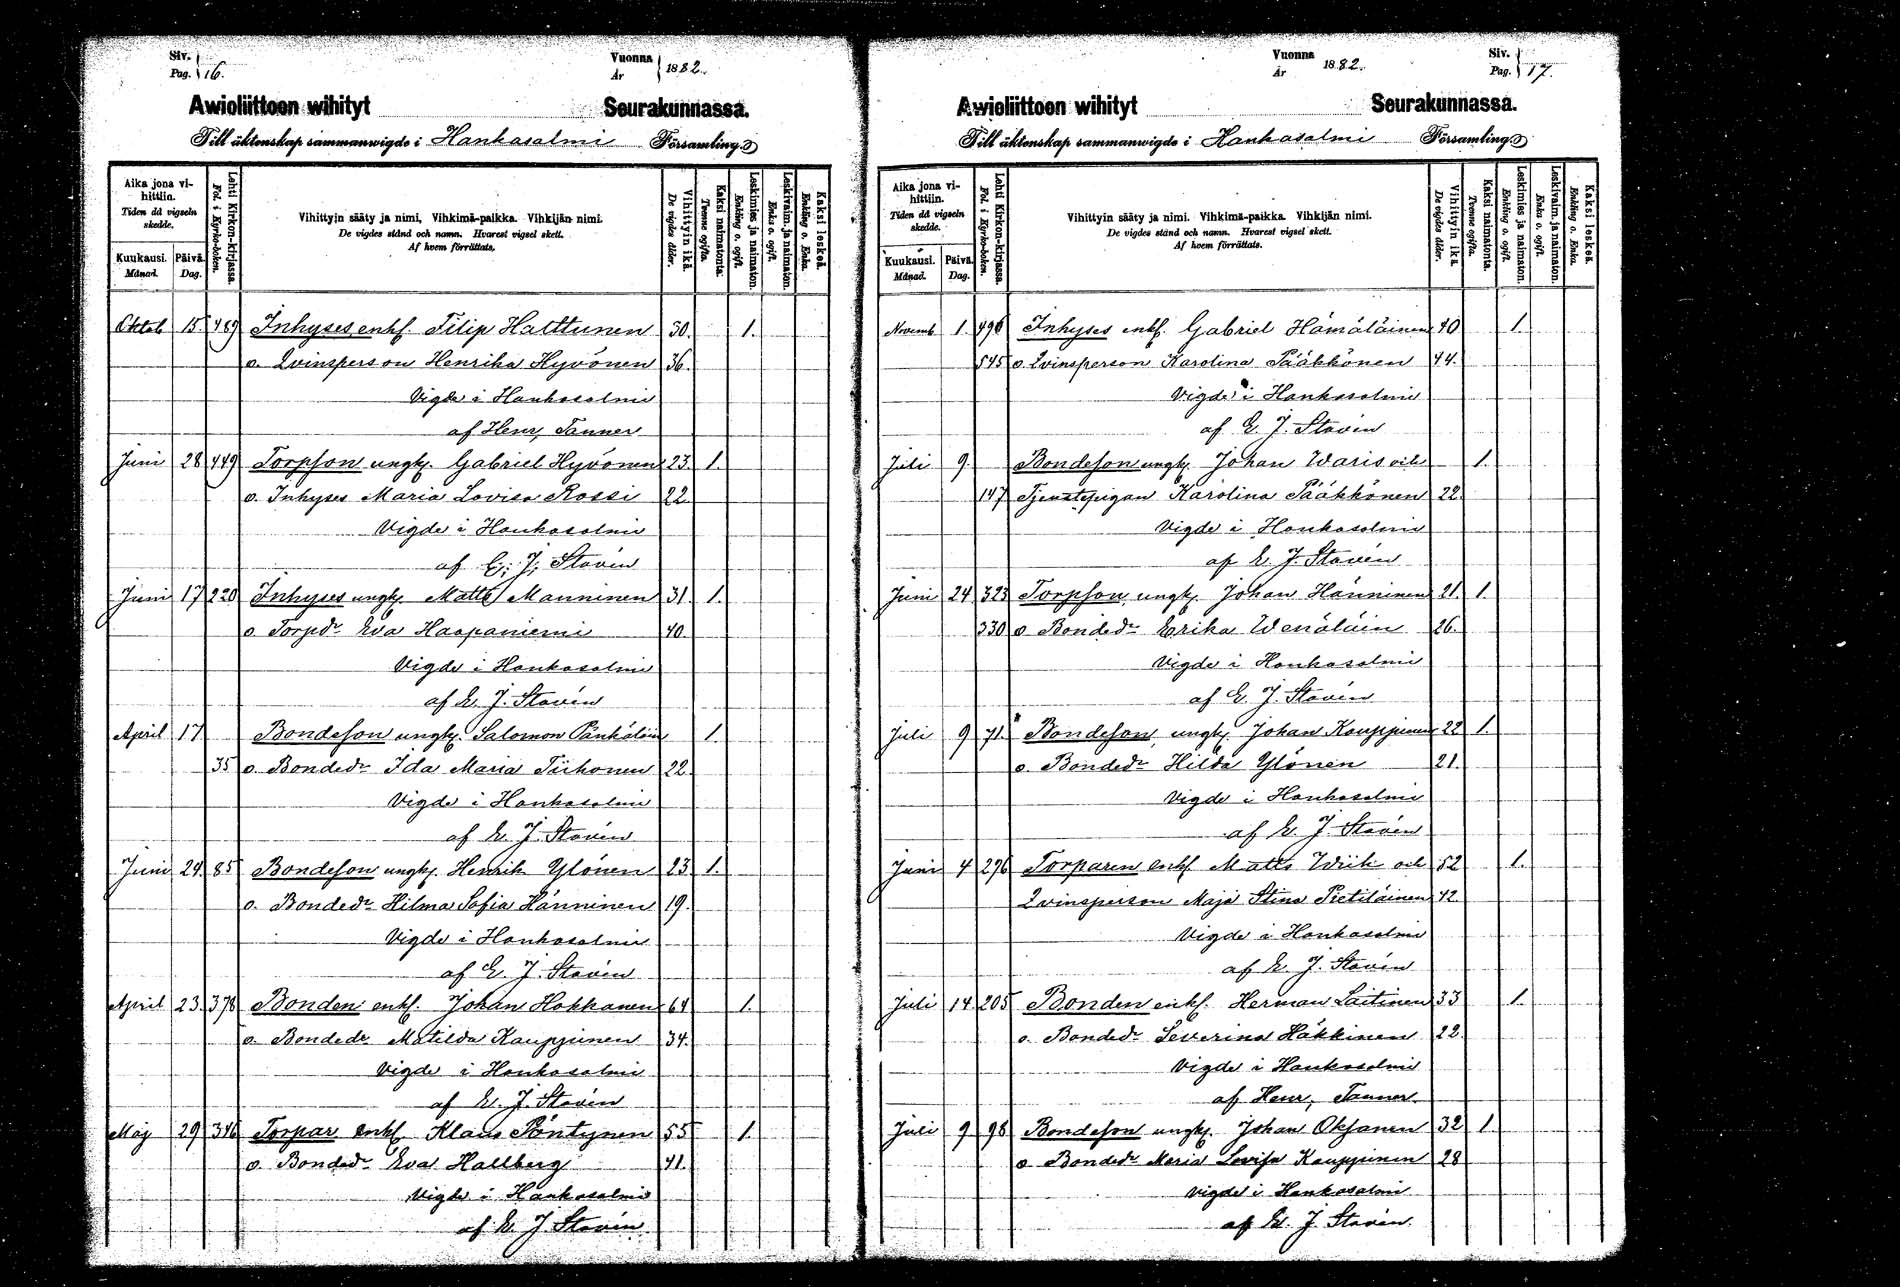 Siv.
Pag. 16.
Vuonna
År 1882.
Awioliittoon wihityt Seurakunnassa.
Till äktenskap sammanwigde i Hankasalmi Församling
Aika jona vihittiin.
Tiden då vigseln skedde.
Kuukausi.
Månad.
Päivä.
Dag.
Lehti Kirkon-kirjassa.
Fol. i Kyrko-boken.
Vihittyin sääty ja nimi, Vihkimä-paikka. Vihkijän nimi.
De vigdes stånd och namn. Hvarest vigsel skett.
Af hvem förrättats.
Vihittyin ikä.
De vigdes ålder.
Kaksi naimatonta.
Tvenne ogifta.
Leskimies ja naimaton.
Enkling o. ogift.
Leskivaim. ja naimaton.
Enka o. ogift.
Kaksi leskeä.
Enkling o. Enka.
Oktob 15. 489 Inhyses enkf. Filip Halttunen 30. 1.
o. Qvinsperson Henrika Hyvönen 36.
Vigde i Hankasalmi
af Henr, Tanner
Juni 28 449 Torpson ungk. Gabriel Hyvönen 23. 1.
o. Inhyses Maria Lovisa Rossi 22
Vigde i Hankasalmi
af E. J. Stavén
Juni 17 220 Inhyses ungk. Matts Manninen 31. 1.
o Torpdr Eva Haapaniemi 40.
Vigde i Hankasalmi
af E. J. Stavén
April 17 Bondeson ungk. Salomon Pänkäläin 1.
35 o. Bondedr Ida Maria Tiihonen 22.
Vigde i Hankasalmi
af E. J. Stavén
Juni 24. 85 Bondeson ungk. Henrik Ylönen 23 1.
o. Bondedr Hilma Sofia Hänninen 19.
Vigde i Hankasalmi
af E. J. Stavén
April 23. 378 Bonden enkf. Johan Hokkanen 64 1.
o. Bondedr Matilda Kauppinen 34.
Vigde i Hankasalmi
af E. J. Stavén
Maj 29 346 Torpar enkf Klaus Pöntynen 55 1.
o. Bondedr Eva Hallberg 41.
Vigde i Hankasalmi
af E. J. Stavén
Vuonna
År 1882.
Siv.
Pag. 17.
Awioliittoon wihityt Seurakunnassa.
Till äktenskap sammanwigde i Hankasalmi Församling
Aika jona vihittiin.
Tiden då vigseln skedde.
Kuukausi.
Månad.
Päivä.
Dag.
Lehti Kirkon-kirjassa.
Fol. i Kyrko-boken.
Vihittyin sääty ja nimi. Vihkimä-paikka. Vihkijän nimi.
De vigdes stånd och namn. Hvarest vigsel skett.
Af hvem förrättats.
Vihittyin ikä.
De vigdes ålder.
Kaksi naimatonta.
Tvenne ogifta.
Leskimies ja naimaton.
Enkling o. ogift.
Leskivaim. ja naimaton.
Enka o. ogift.
Kaksi leskeä.
Enkling o. Enka.
Novemb 1. 496 Inhyses enkf. Gabriel Hämäläinen 40 1.
545 o. Qvinsperson Karolina Pääkkönen 44.
Vigde i Hankasalmi
af E. J. Stavén
Juli 9. Bondeson ungk. Johan Waris och 1.
147 Tjenstepigan Karolina Pääkkönen 22.
Vigde i Hankasalmi
af E. J. Stavén
Juni 24 323 Torpson ungk. Johan Hänninen 21. 1.
330 o Bondedr Erika Wenäläin 26.
Vigde i Hankasalmi
af E. J. Stavén
Juli 9 71. Bondeson, ungk. Johan Kauppinen 22 1.
o. Bondedr Hilda Ylönen 21.
Vigde i Hankasalmi
af E. J. Stavén
Juni 4 276 Torparen enkf Matts Wiik och 52 1.
Qvinsperson Maja Stina Pietiläinen 42.
Vigde i Hankasalmi
af E. J. Stavén
Juli 14 205 Bonden enkf. Herman Laitinen 33 1.
o. Bondedr Severina Häkkinen 22.
Vigde i Hankasalmi
af Henr, Tanner.
Juli 9 98 Bondeson ungk. Johan Oksanen 32 1.
o. Bondedr Maria Lovisa Kauppinen 28
Vigde i Hankasalmi
af E. J. Stavén.